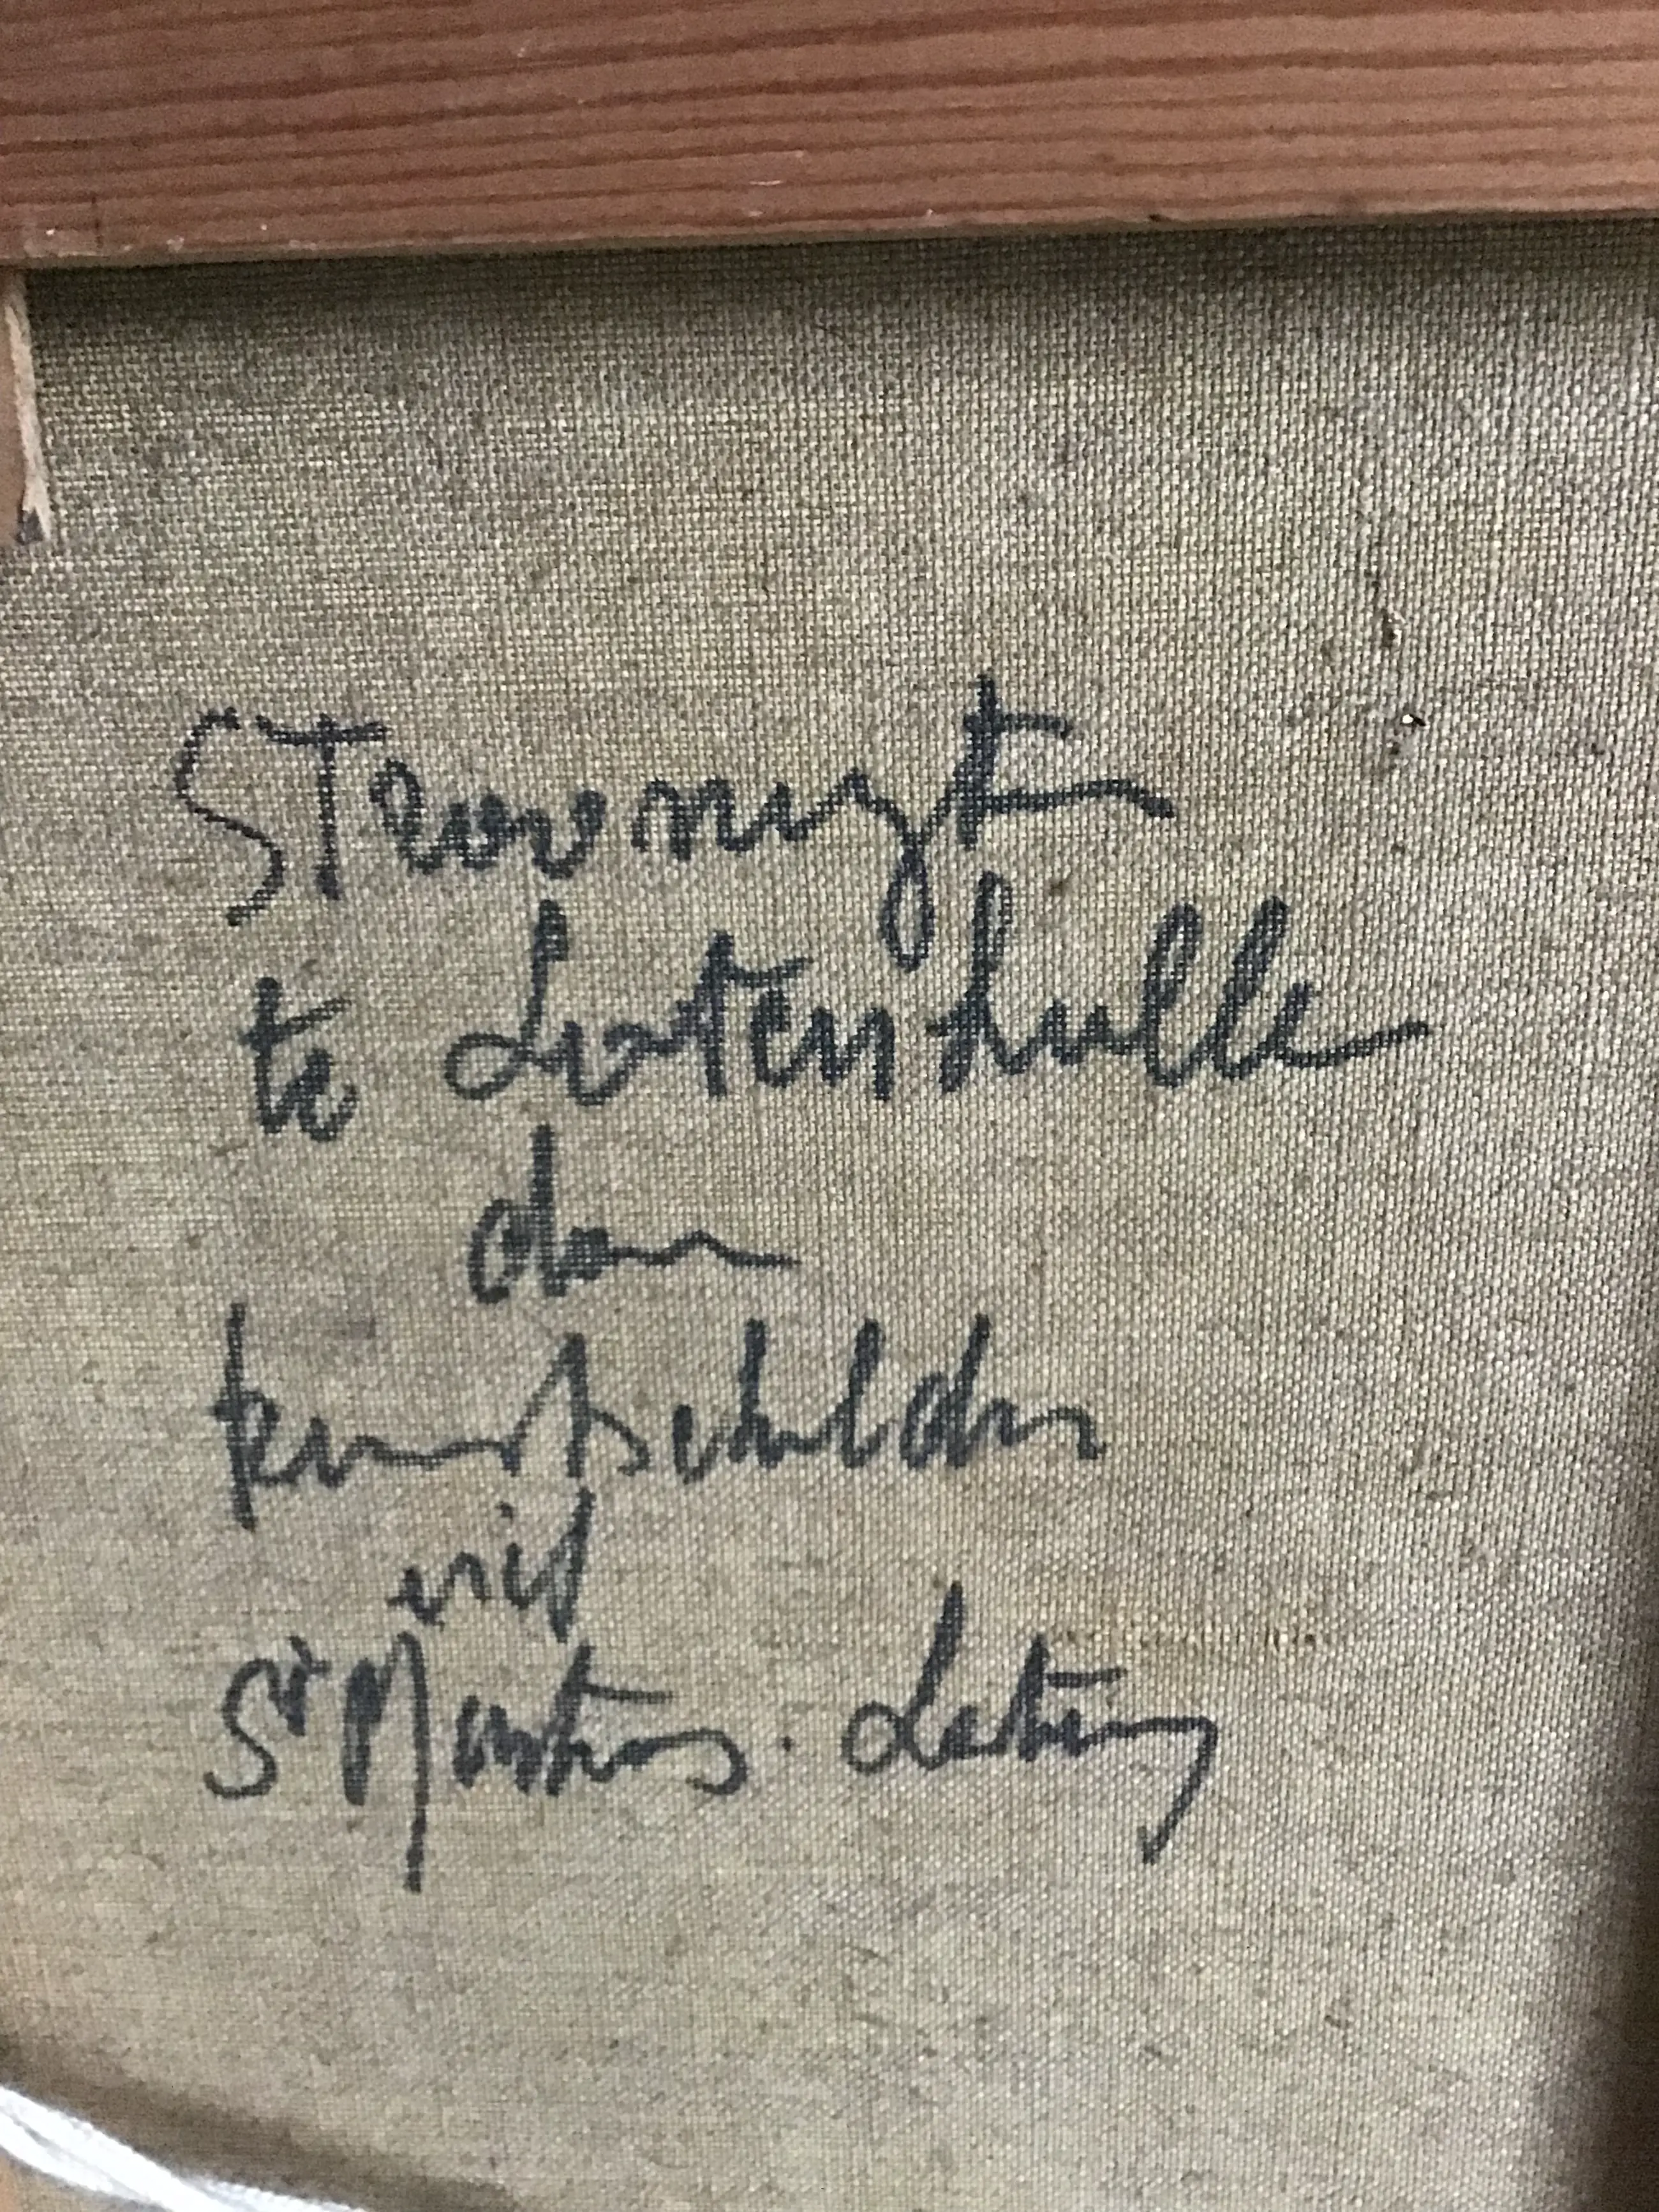 STroomijt
te Lotenhulle
door
kunstschilder
uit
St Martens. Latem